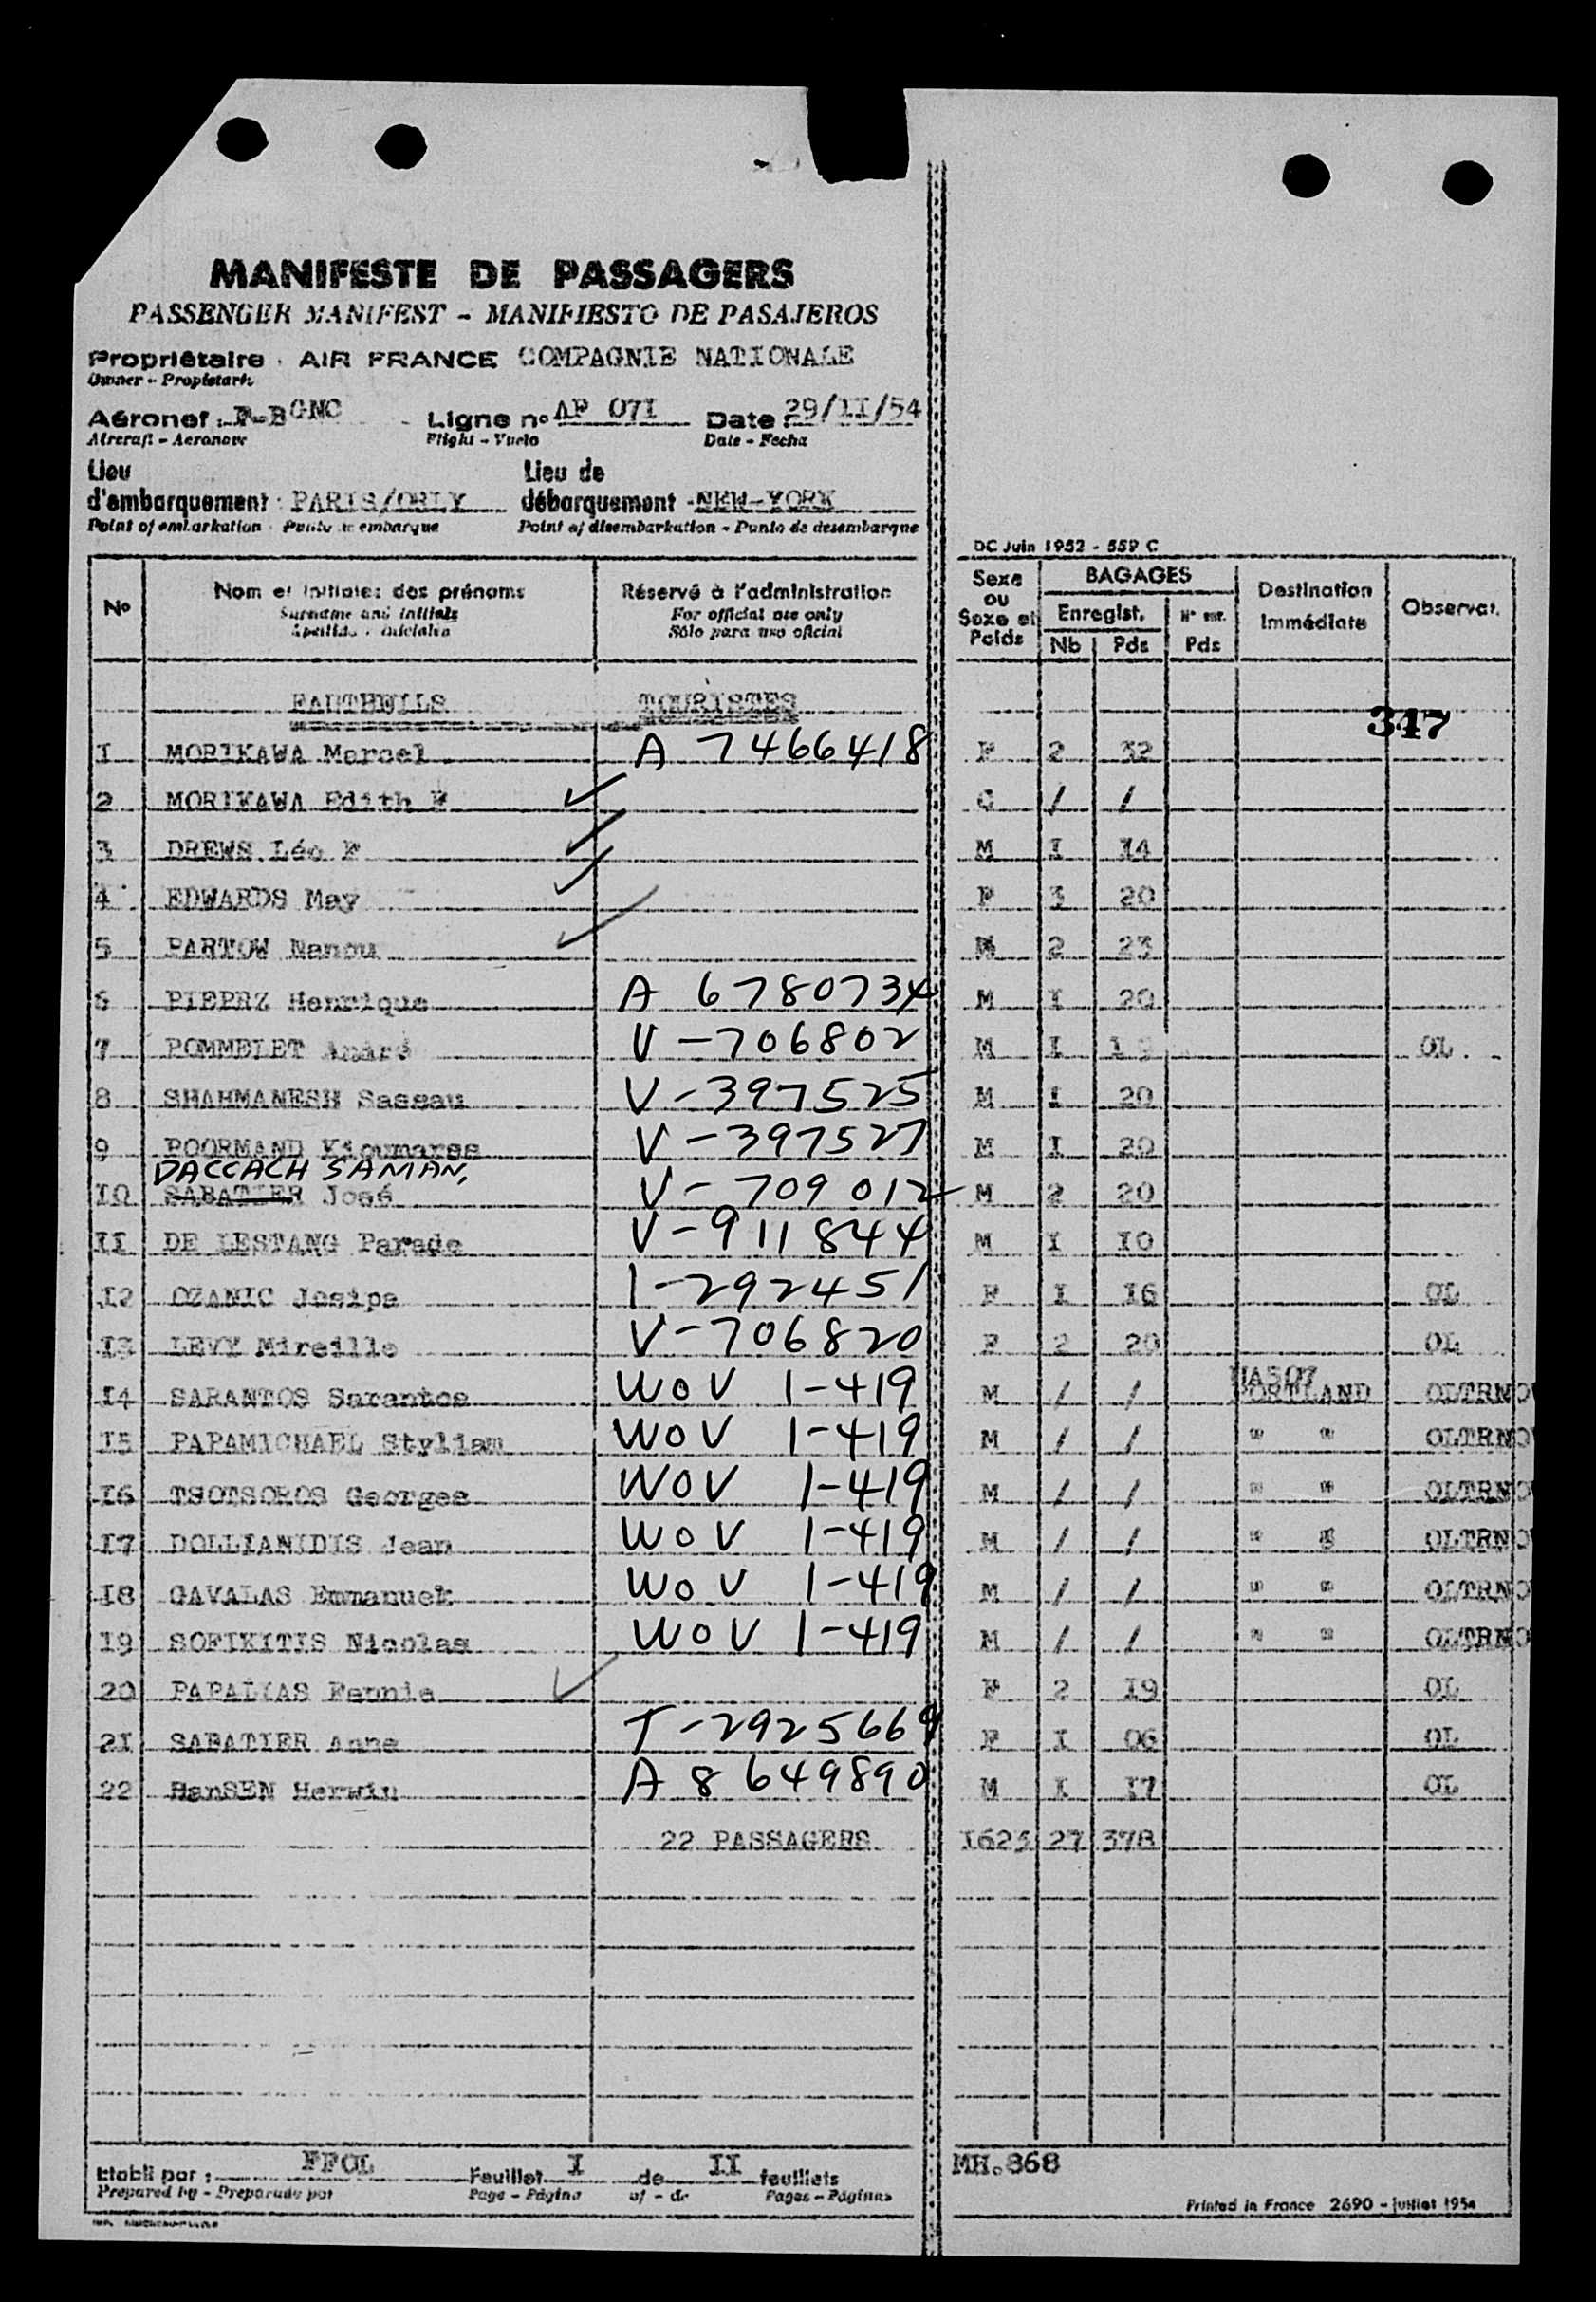 MANIFESTE DE PASSAGERS
PASSENGER MANIFEST - MANIFIESTO DE PASAJEROS
Propriétaire : AIR FRANCE COMPAGNIE NATIONALE
Owner - Propietario
Aéronef : F-BGNC Ligne n° AF 07I Date : 29/II/54
Aircraft - Aeronave Flight - Vuelo Date - Fecha
Lieu d'embarquement : PARIS/ORLY Lieu de débarquement - NEW-YORK
Point of embarkation - Punto de embarque Point of disembarkation - Punto de desembarque
DC Juin 1952 - 559 C
N° Nom et initiales des prénoms Réservé à l'administration Sexe ou Sexe et Poids BAGAGES Destination Immédiate Observat.
Surname and initials For official use only Enregist.
Apellido e iniciales Sólo para uso oficial Nb Pds Pds
FAUTEUILS TOURISTES
347
I MORIKAWA Marcel A 7466418 F 2 32
2 MORIKAWA Edith F C / /
3 DREWS Léo F M I I4
4 EDWARDS May F 3 20
5 PARTOW Nanou 2 23
6 PIEPRZ Henrique A 6780734 M I 20
7 POMMELET André V-706802 M I OL
8 SHAHMANESH Sassau V-397525 M I 20
9 POORMAND Kioumarss V-397527 M I 20
DACCACH SAMAN,
IO SABATIER José V-709012 M 2 20
II DE LESTANG Parade V-911844 M I IO
I2 OZANIC Josipa 1-292451 F I I6 OL
I3 LEVY Mireille V-706820 F 2 20 OL
UA507
I4 SARANTOS Sarantos WOV 1-419 M / / PORTLAND OLTRNO
I5 PAPAMICHAEL Styliam WOV 1-419 M / / " " OLTRNO
I6 TSOTSOROS Georges WOV 1-419 M / / " " OLTRNO
I7 DOLLIANIDIS Jean WOV 1-419 M / / " " OLTRNO
I8 GAVALAS Emmanuel WOV 1-419 M / / " " OLTRNO
I9 SOFIKITIS Nicolas WOV 1-419 M / / " " OLTRNO
20 PAPALIAS Fannie F 2 I9 OL
2I SABATIER Anne T-2925669 F I 06 OL
22 HanSEN Herwin A 8649890 M I I7 OL
22 PASSAGERS I623 27 378
Etabli par : FFOL Feuillet I de II feuillets MH.868
Prepared by - Preparado por Page - Página of - de Pages - Páginas
Printed in France 2690 - juillet 1954